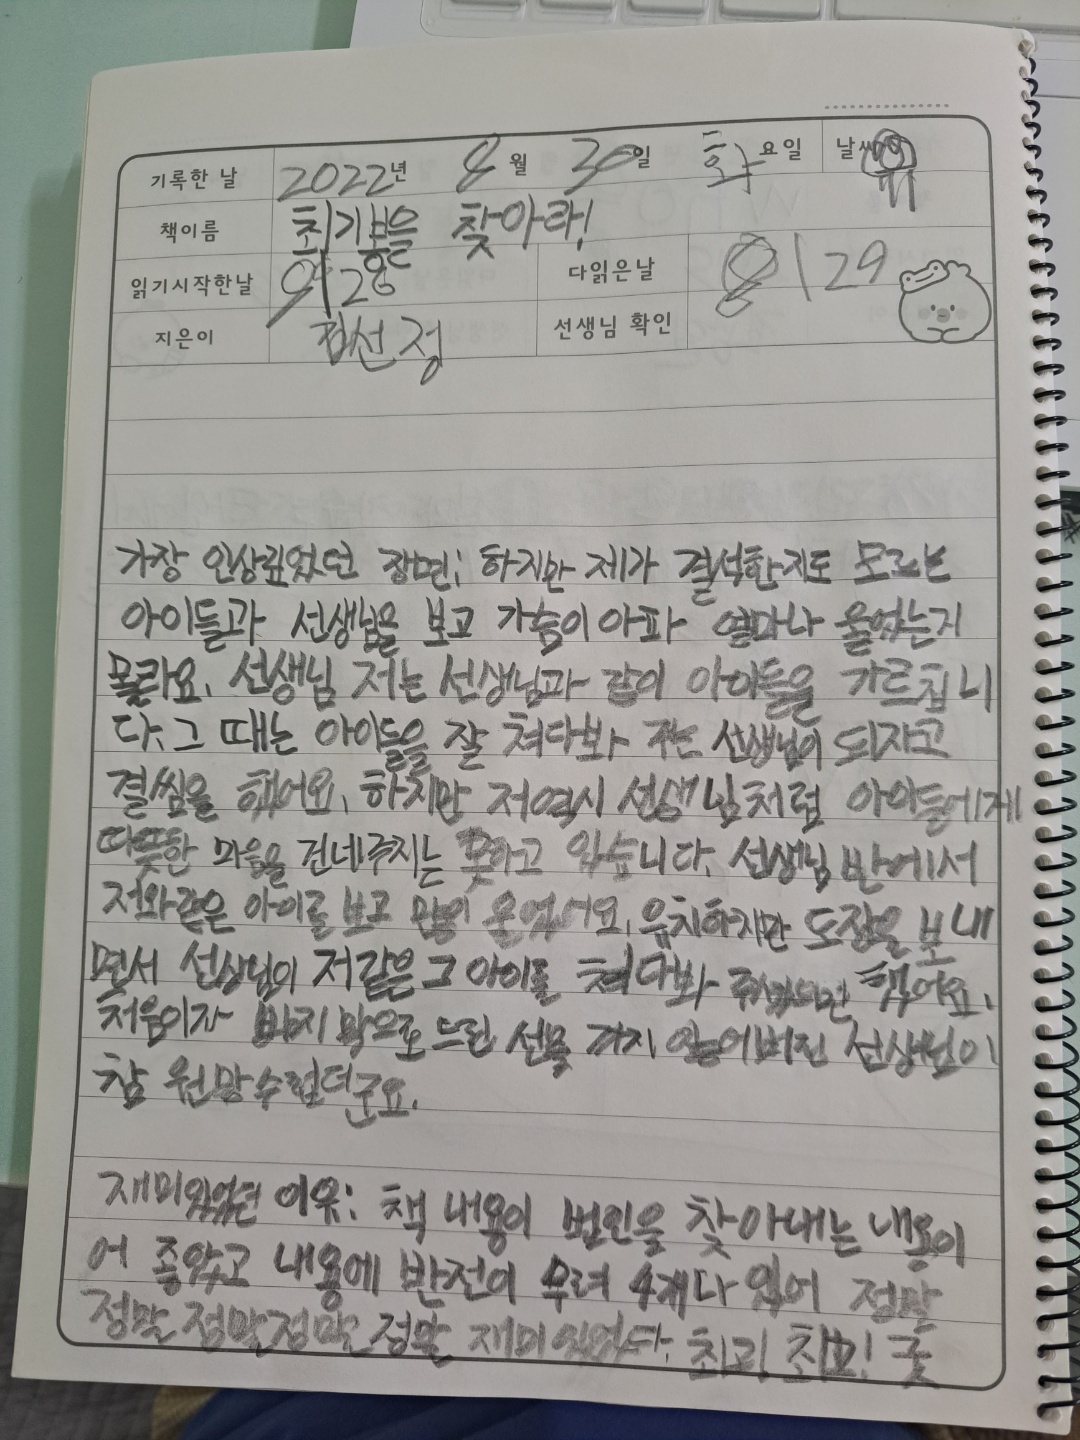 기록한 날 2022년 8월 30일 화요일 날씨
책이름 최기봉을 찾아라!
읽기시작한날 8/28 다읽은날 8/29
지은이 김선정 선생님 확인
가장 인상깊었던 장면; 하지만 제가 결석한지도 모르는
아이들과 선생님을 보고 가슴이 아파 얼마나 울었는지
몰라요. 선생님 저는 선생님과 같이 아이들을 가르칩니
다. 그 때는 아이들을 잘 쳐다봐 주는 선생님이 되자고
결씸을 했어요. 하지만 저 역시 선생님처럼 아이들에게
따뜻한 마음을 건네주지는 못하고 있습니다. 선생님 반에서
저와같은 아이를 보고 많이 울었어요. 유치하지만 도장을 보내
면서 선생님이 저같은 그 아이를 쳐다봐 주셨으면 했어요.
처음이자 마지막으로 드린 선물 까지 잊어버린 선생님이
참 원망스럽더군요.
재미있었던 이유: 책 내용이 범인을 찾아내는 내용이
어 좋았고 내용에 반전이 무려 4개다 있어 정말
정말 정말정말 정말 재미있었다. 최고! 최고! 굿